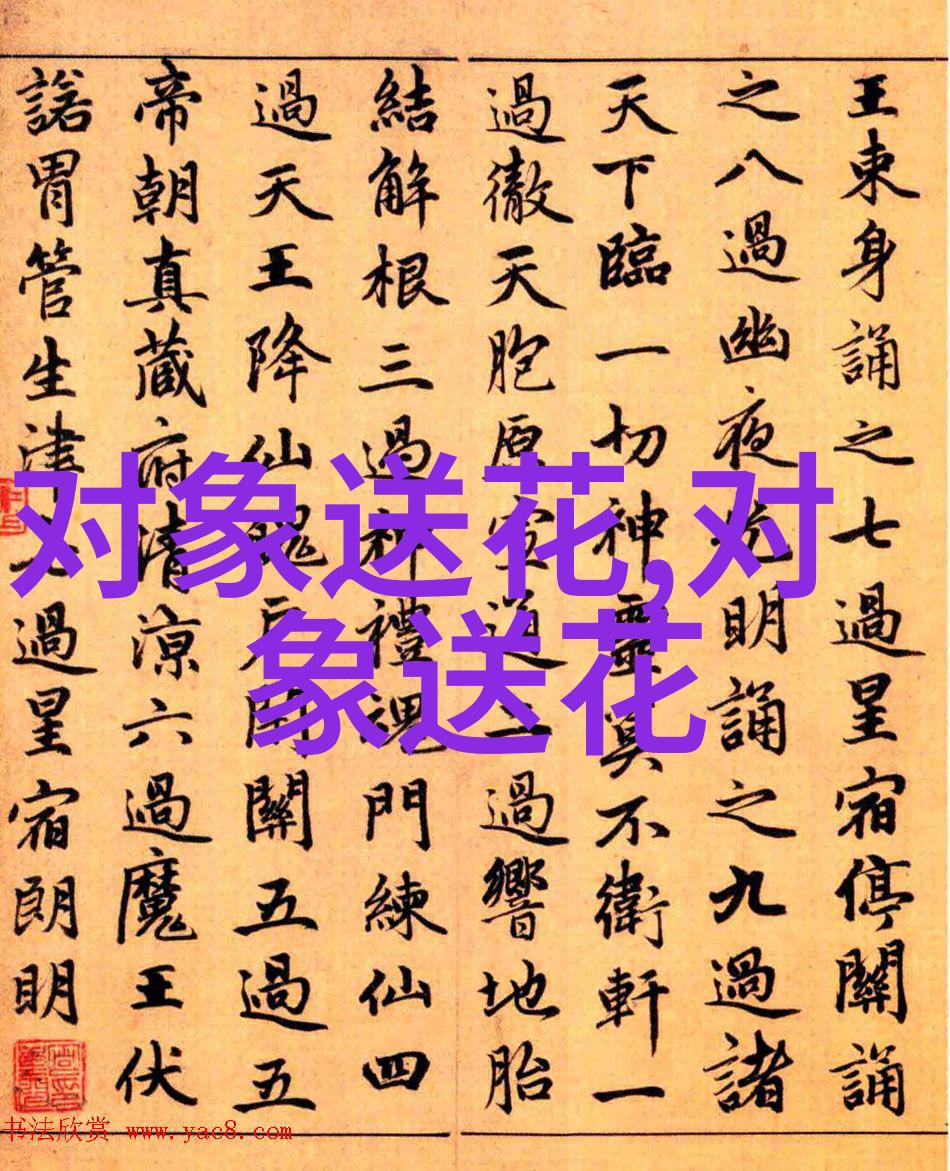 王東身誦之七過星宿停關誦
之八過幽夜光明誦之九過諸
天下臨一切神靈莫不衛軒一
過徹天胞原宣道二過響地胎
結解根三過神禮魂門練仙四
過天王降仙魂戶開關五過五
帝朝真藏府清凉六過魔王伏
諾胃管生津七過星宿朗明
对象送花,对
象送花
书法欣赏 www.yac8.com